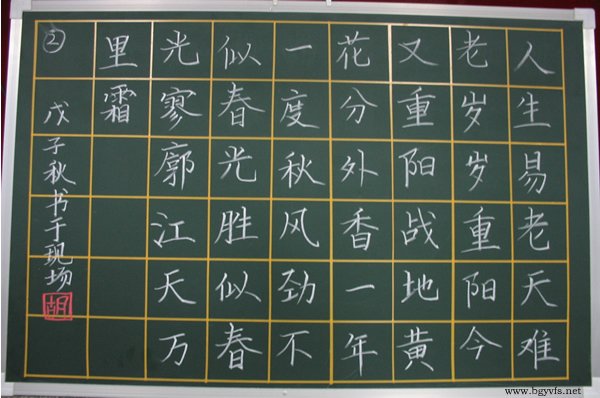 人生易老天难
老岁岁重阳今
又重阳战地黄
花分外香一年
一度秋风劲不
似春光胜似春
光寥廓江天万
里霜
②
戊子秋书于现场
胡
www.bgyvfs.net